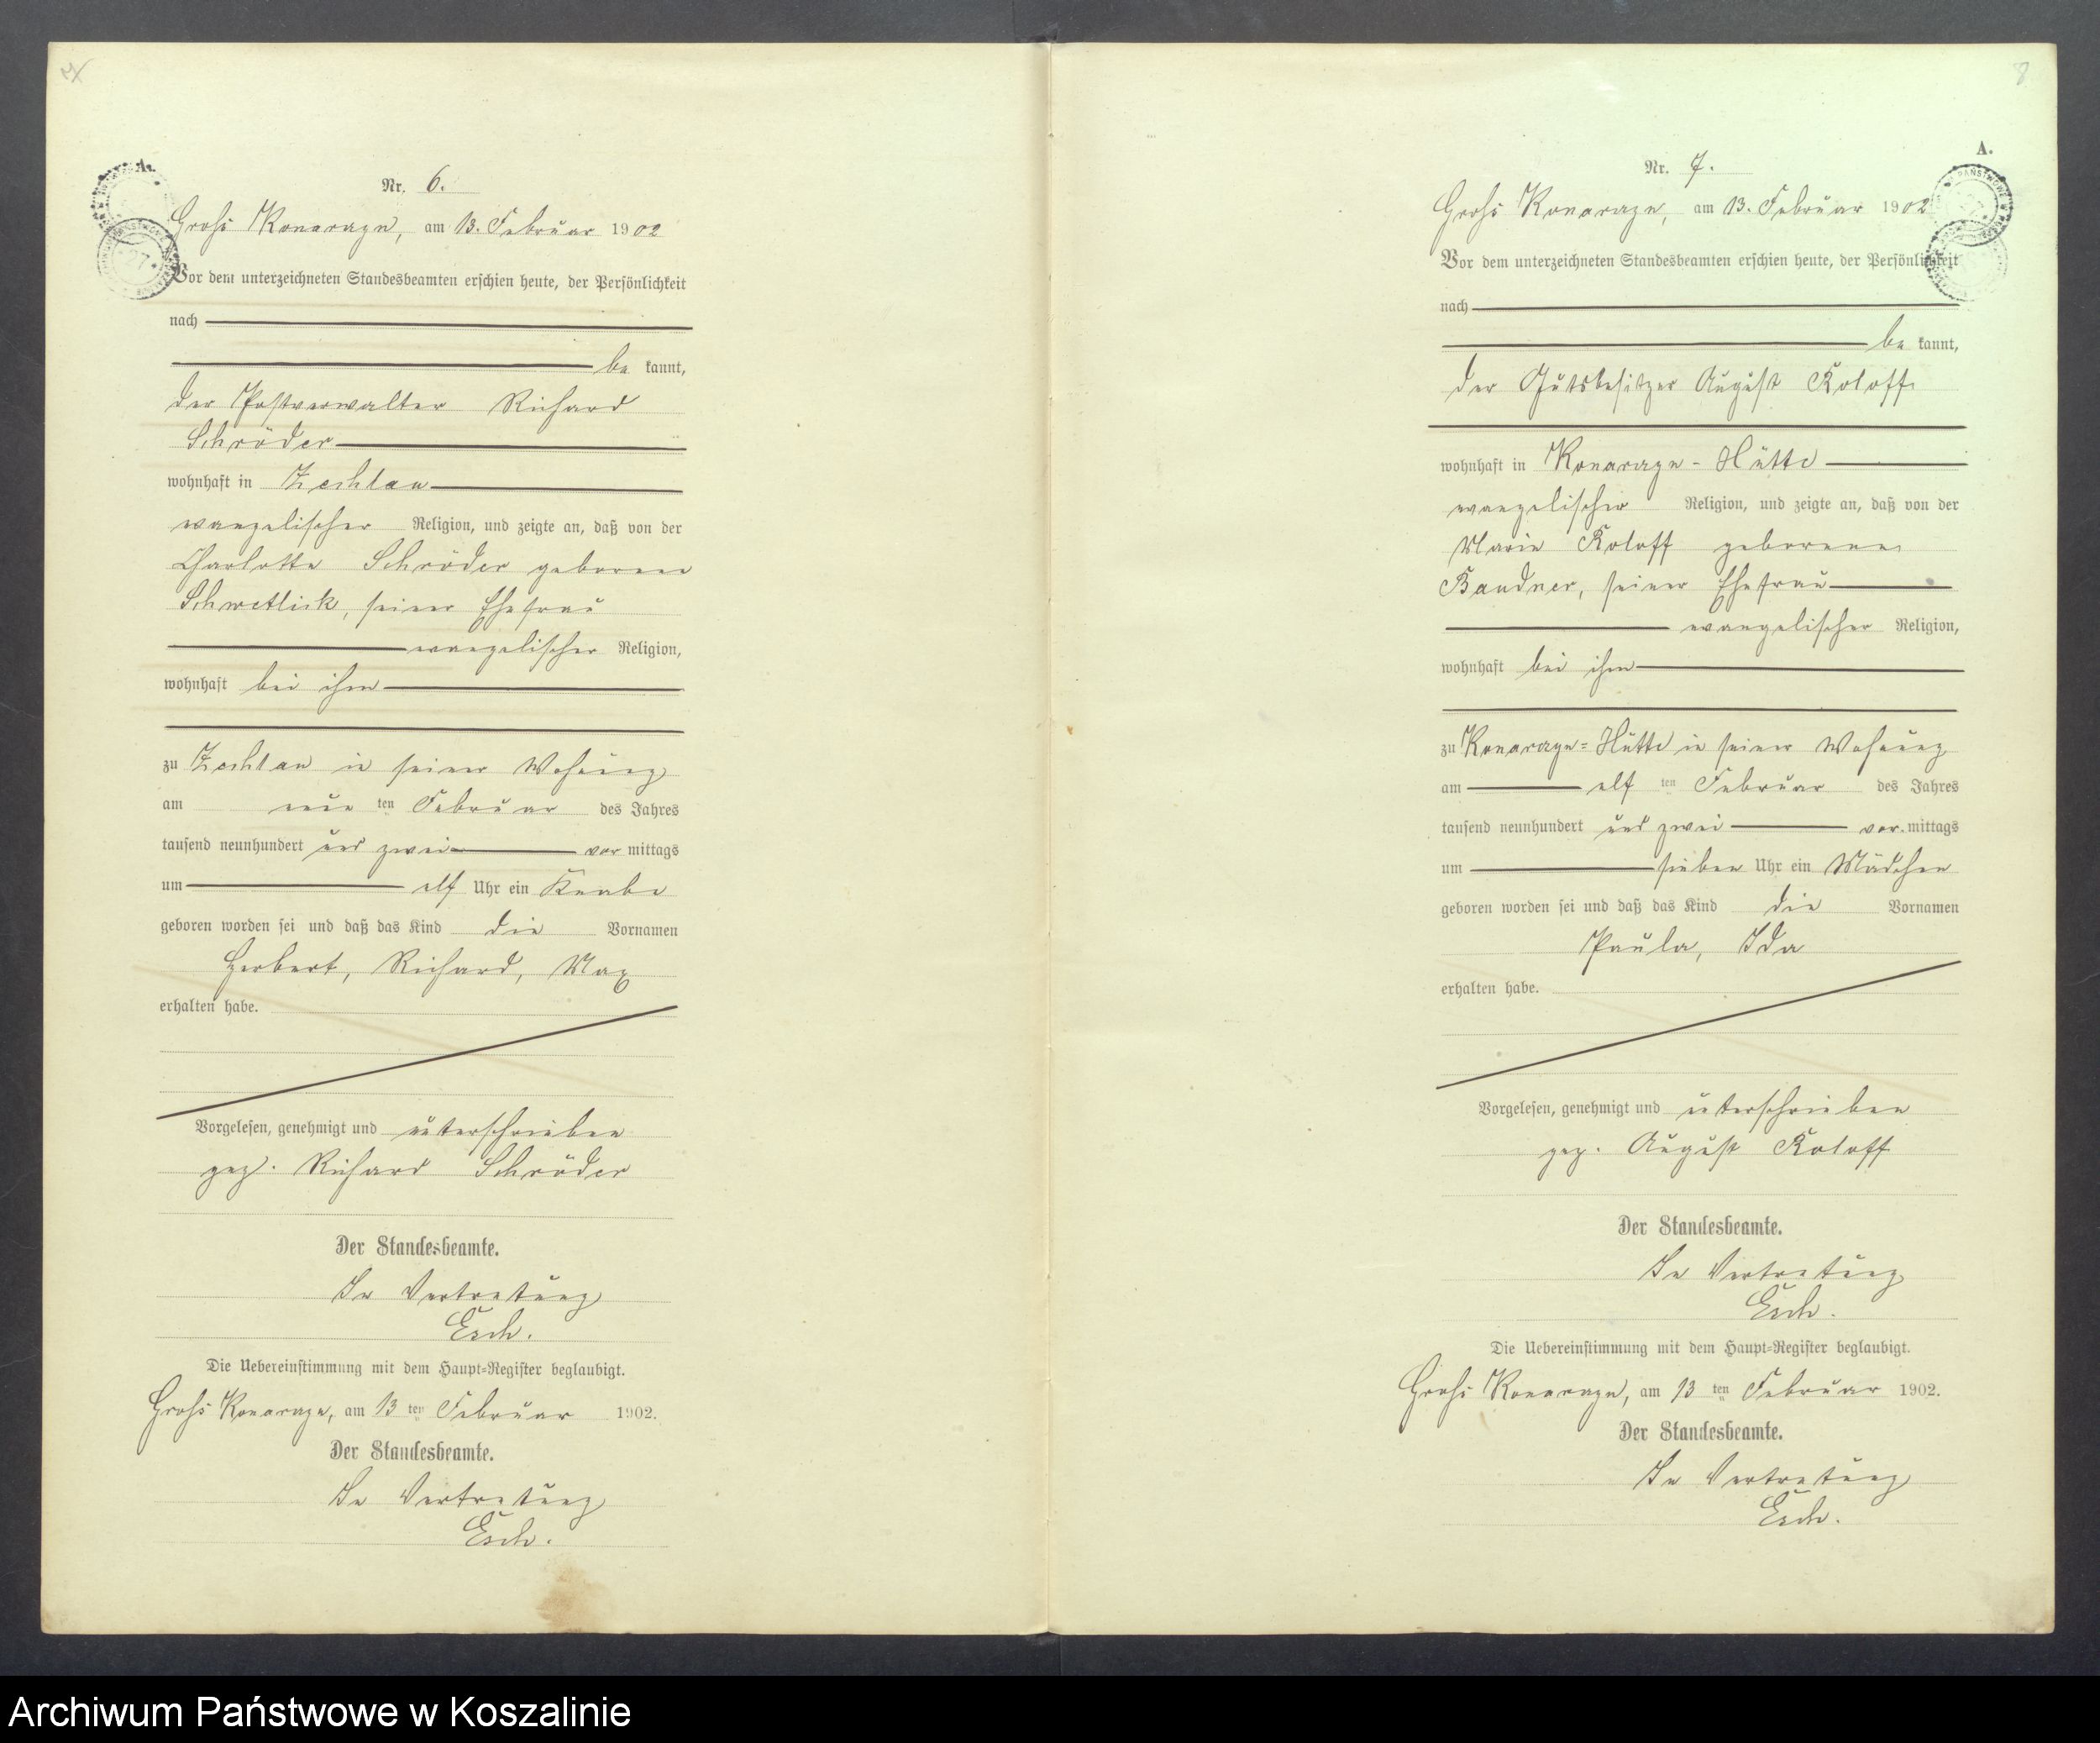 A.
Nr. 6.
Groß Konarzyn, am 13. Februar 1902
Vor dem unterzeichneten Standesbeamten erschien heute, der Persönlichkeit
nach
be kannt,
der Postverwalter Richard
Schröder
wohnhaft in Zechlau
evangelischer Religion, und zeigte an, daß von der
Charlotte Schröder geborenen
Schwetlick, seiner Ehefrau
evangelischer Religion,
wohnhaft bei ihm
zu Zechlau in seiner Wohnung
am neun ten Februar des Jahres
tausend neunhundert und zwei vor mittags
um elf Uhr ein Knabe
geboren worden sei und daß das Kind die Vornamen
Herbert, Richard, Max
erhalten habe.
Vorgelesen, genehmigt und unterschrieben
gez. Richard Schröder
Der Standesbeamte.
In Vertretung
Esch.
Die Uebereinstimmung mit dem Haupt-Register beglaubigt.
Groß Konarzyn, am 13 ten Februar 1902.
Der Standesbeamte.
In Vertretung
Esch.
8
A.
Nr. 7.
Groß Konarzyn, am 13. Februar 1902
Vor dem unterzeichneten Standesbeamten erschien heute, der Persönlichkeit
nach
be kannt,
der Gutsbesitzer August Roloff
wohnhaft in Konarzyn-Hütte
evangelischer Religion, und zeigte an, daß von der
Marie Roloff geborenen
Bandner, seiner Ehefrau
evangelischer Religion,
wohnhaft bei ihm
zu Konarzyn=Hütte in seiner Wohnung
am elf ten Februar des Jahres
tausend neunhundert und zwei vor. mittags
um sieben Uhr ein Mädchen
geboren worden sei und daß das Kind die Vornamen
Paula, Ida
erhalten habe.
Vorgelesen, genehmigt und unterschrieben
gez. August Roloff
Der Standesbeamte.
In Vertretung
Esch.
Die Uebereinstimmung mit dem Haupt=Register beglaubigt.
Groß Konarzyn, am 13 ten Februar 1902.
Der Standesbeamte.
In Vertretung
Esch.
Archiwum Państwowe w Koszalinie